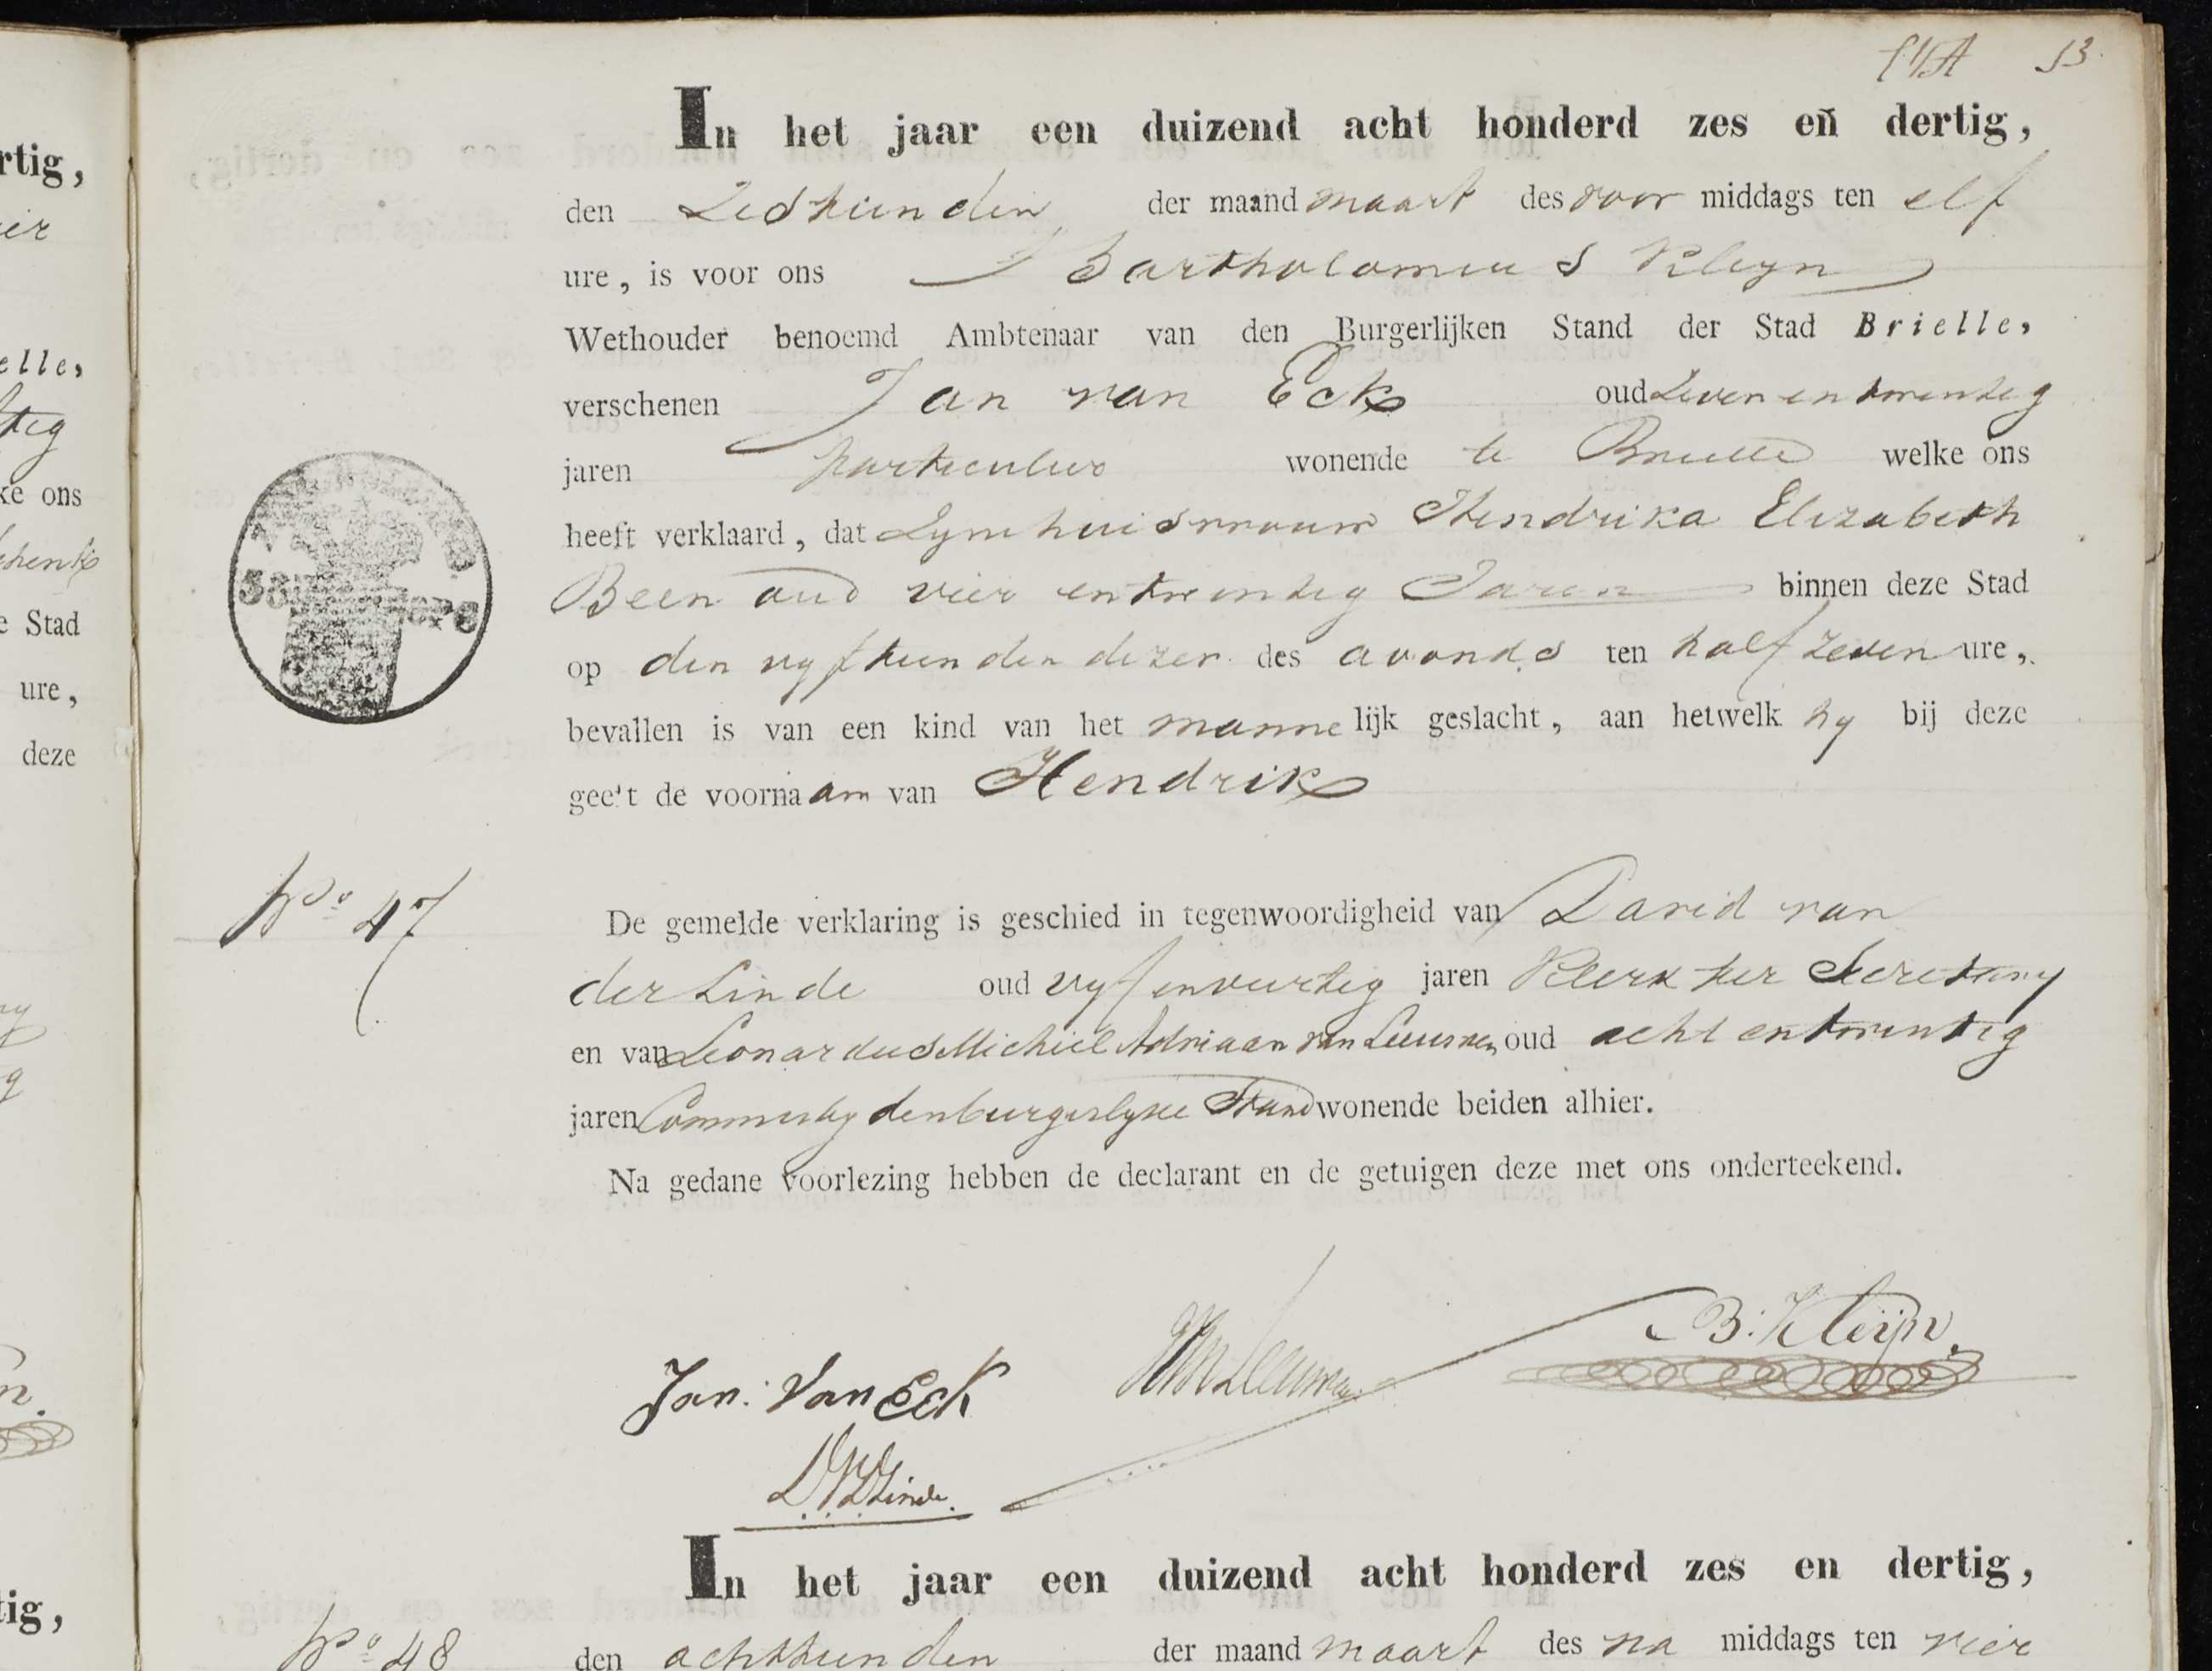 53.
In het jaar een duizend acht honderd zes en dertig,
den Zesthienden der maand maart des voor middags ten elf
ure, is voor ons Bartholomeus Kleyn
Wethouder benoemd Ambtenaar van den Burgerlijken Stand der Stad Brielle,
verschenen Jan van Eck oud zeven en twentig
jaren particulier wonende te Brielle welke ons
heeft verklaard, dat Zyne huisvrouw Hendrika Elizabeth
Been oud vier en twentig Jaren binnen deze Stad
op den vyfthienden dezer des avonds ten half zeven ure,
bevallen is van een kind van het mannelijk geslacht, aan hetwelk hy bij deze
geeft de voornaam van Hendrik
No 47
De gemelde verklaring is geschied in tegenwoordigheid van David van
der Linde oud vyf en veertig jaren Klerk ter Secretary
en van Leonardus Michiel Adriaan van Leeuwen oud acht en twintig
jaren Commies by den burgerlyke Stand wonende beiden alhier.
Na gedane voorlezing hebben de declarant en de getuigen deze met ons onderteekend.
B: Kleijn
Jan: Van Eck
Leeuwen
Linde.
In het jaar een duizend acht honderd zes en dertig,
No 48
den achtthienden der maand maart des na middags ten vier
rtig,
ier
elle,
tig
ke ons
e Stad
ure,
deze
tig,